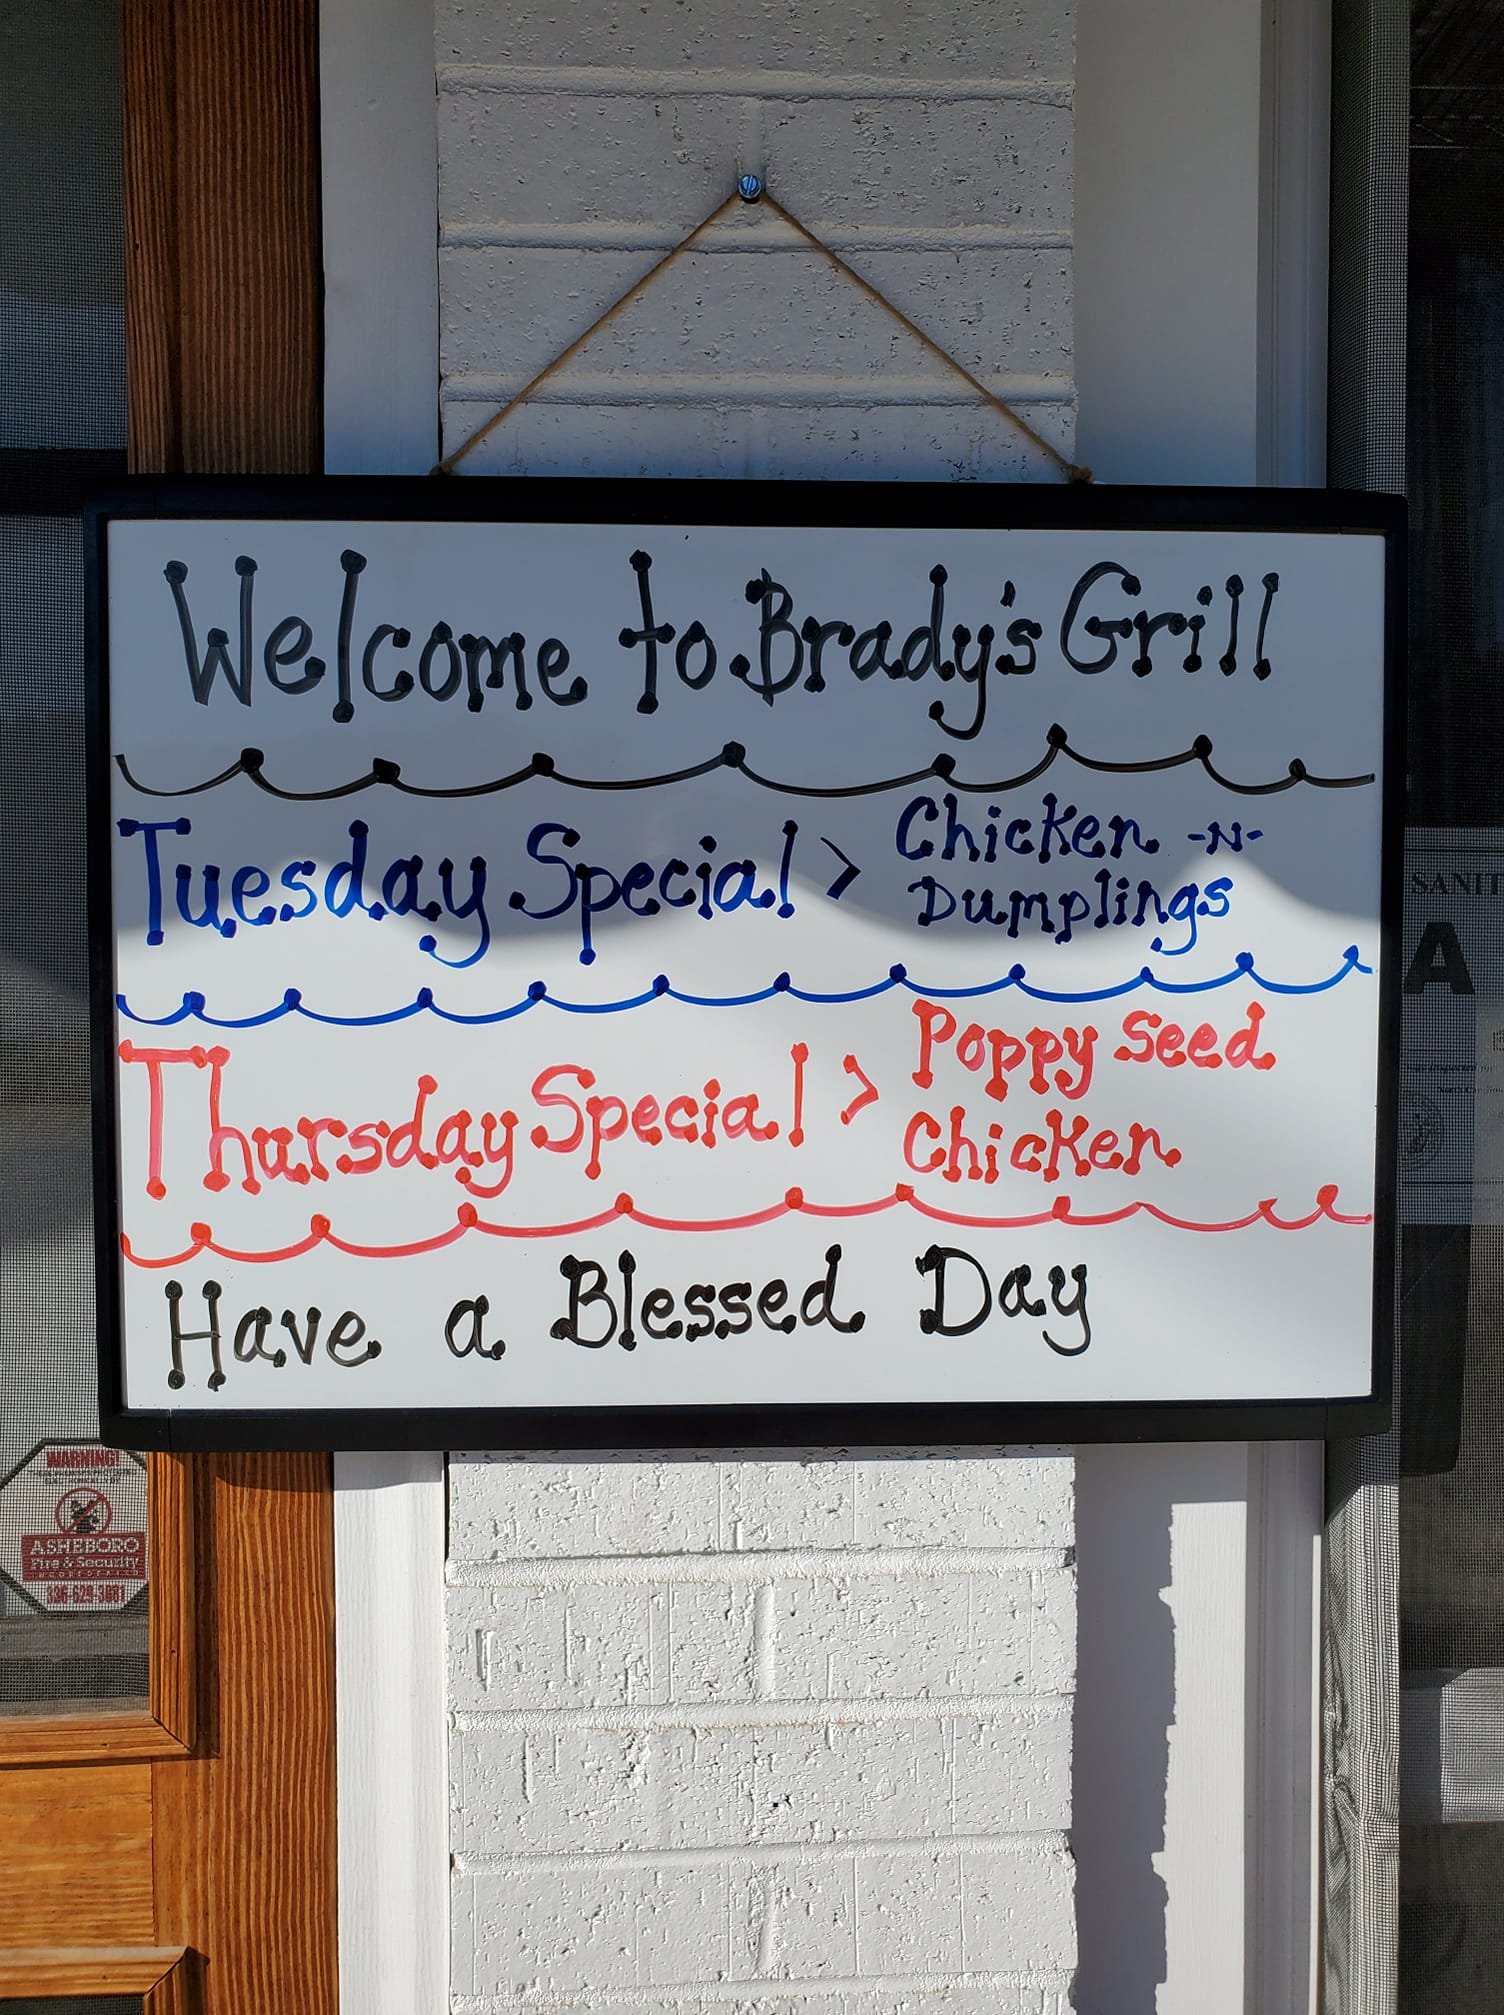 Welcome to Brady's Grill
Tuesday Special > Chicken -N-
Dumplings
Thursday Special > Poppy Seed
Chicken
Have a Blessed Day
SANIT
A
WARNING!
ASHEBORO
Fire & Security
INCORPORATED